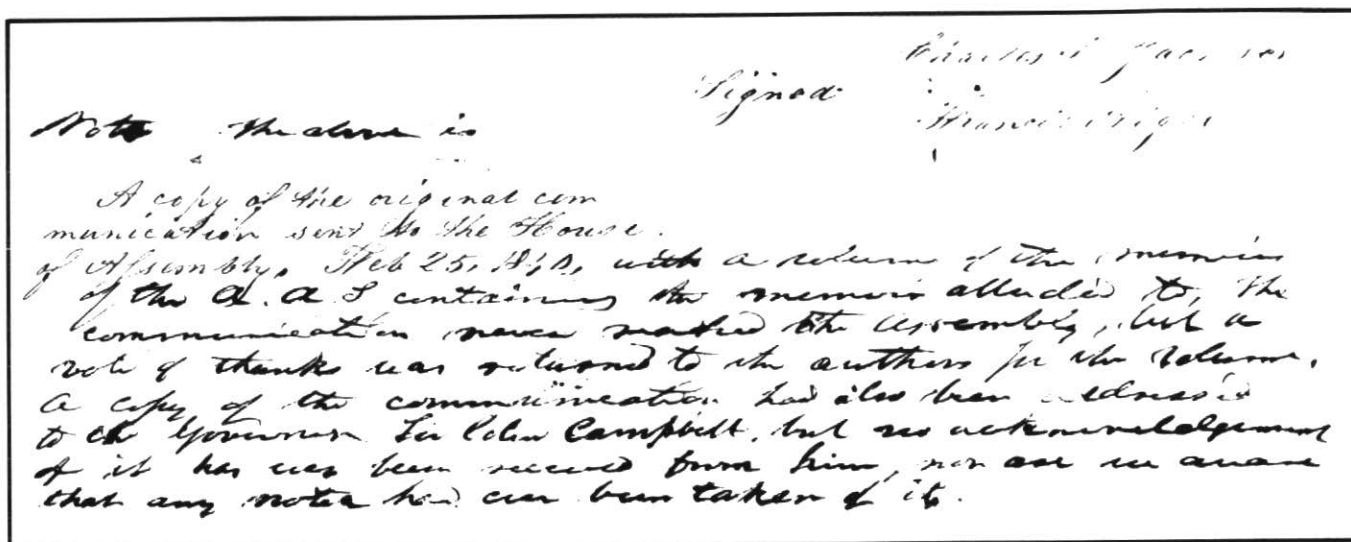 Signed
Note the above is
A copy of the original com
munication sent to the House.
of Assembly, Feb 25, with a volume of the memoirs
of the A. A. S containing the memoir alluded to, the
communication never reached the Assembly, but a
vote of thanks was returned to the authors for the volume.
A copy of the communication had also been addressed
to the Governor Sir Colin Campbell, but no acknowledgement
of it has ever been received from him, nor are we aware
that any notice had ever been taken of it.